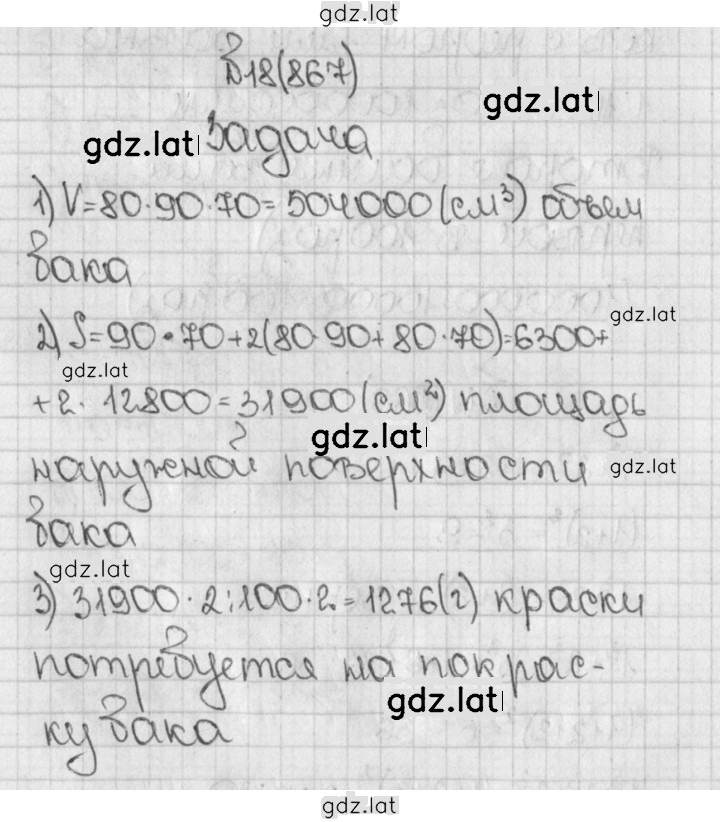 gdz.lat
№18(867)
gdz.lat
gdz.lat Задача
1) V=80·90·70=504000(см³) объем
бака
gdz.lat
2) S=90·70+2(80·90+80·70)=6300+
gdz.lat
+2·12800=31900(см²) площадь
gdz.lat
наружной поверхности gdz.lat
бака
gdz.lat
3) 31900·2:100·2.=1276(г) краски
потребуется на покрас-
gdz.lat
ку бака
gdz.lat